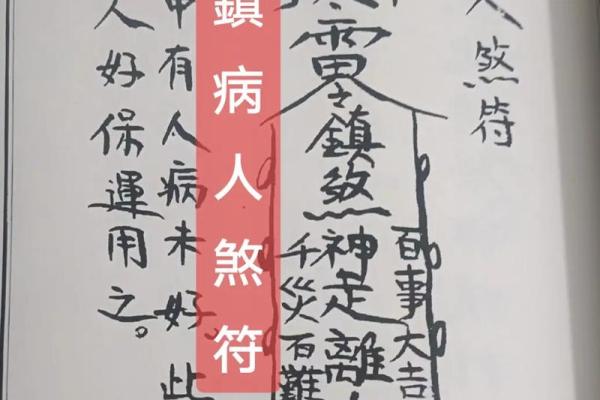 人煞符
百事大吉
鎮煞神走離
千災百難
鎮病人煞符
有人病未好。此
人好保運用之。